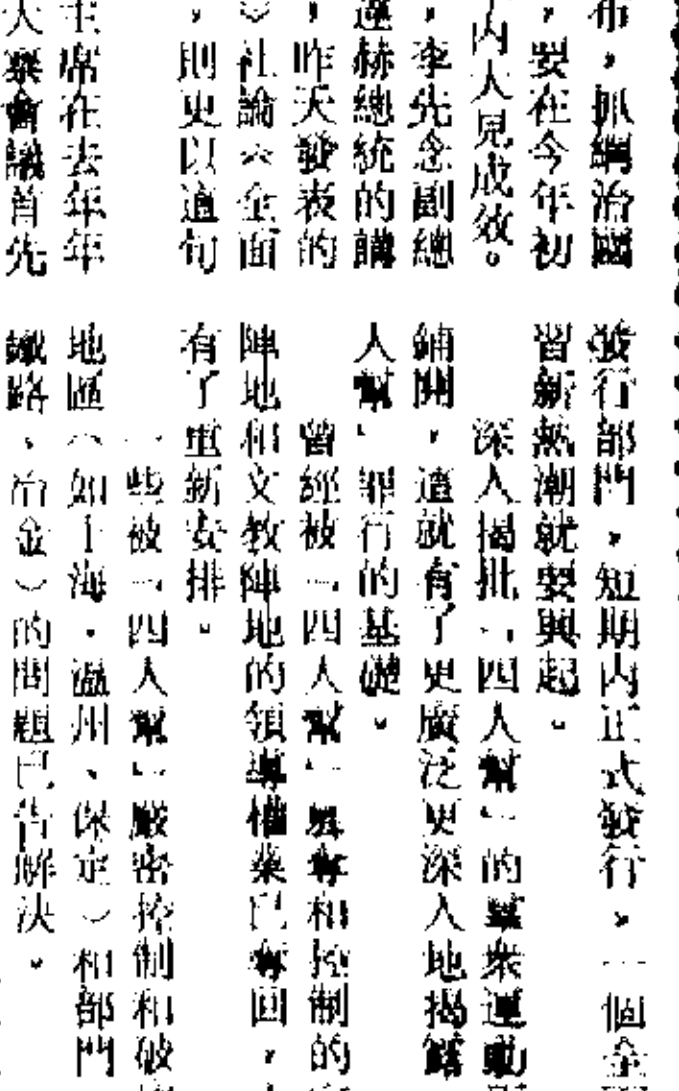 布，抓綱治國
，要在今年初
內大見成效。
，李先念副總
達赫總統的講
，昨天發表的
》社論《全面
，則更以這句
主席在去年年
大寨會議首先
發行部門，短期內正式發行，一個全
習新熱潮就要興起。
深入揭批「四人幫」的羣衆運動
鋪開，這就有了更廣泛更深入地揭露
人幫」罪行的基礎。
曾經被「四人幫」奪和控制的
陣地和文教陣地的領導權業已奪回，
有了重新安排。
一些被「四人幫」嚴密控制和破
地區（如上海、溫州、保定）和部門
鐵路、冶金）的問題已告解決。